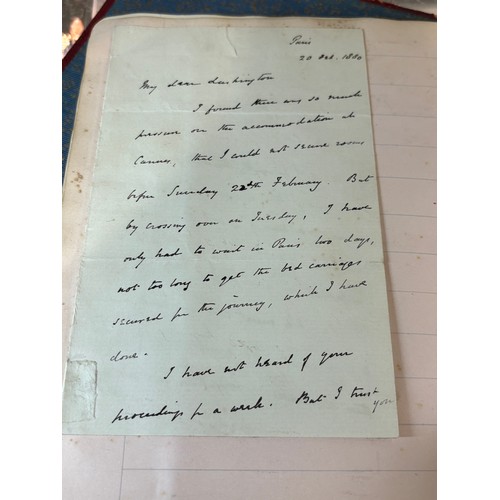 Paris
20 Feb. 1880
My dear Lushington
I found there was so much
pressure on the accommodation at
Cannes, that I could not secure rooms
before Sunday 22th February. But
by crossing over on Tuesday, I have
only had to wait in Paris two days,
not too long to get the bed carriages
secured for the journey, which I have
done.
I have not heard of your
proceedings for a week. But I trust
you